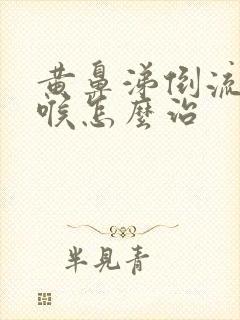 黄鼻涕倒流
喉怎麼治
半見青